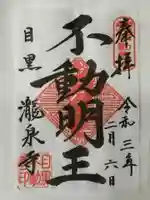 奉拝
令和三年
二月六日
不動明王
目黒
瀧泉寺